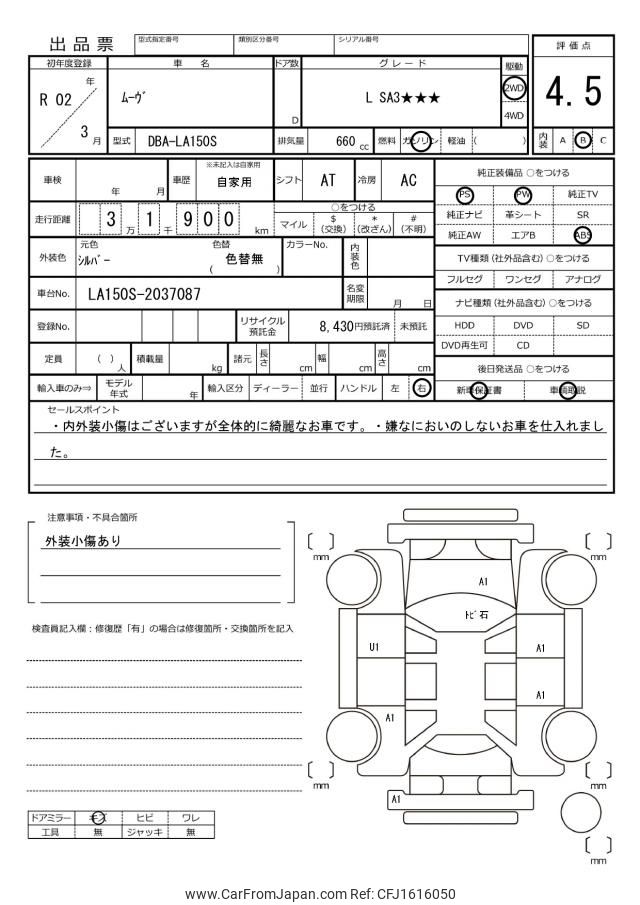 出品票
型式指定番号 類別区分番号 シリアル番号
評価点
4.5
初年度登録 車名 ドア数 グレード 駆動
R 02 年 3 月
ムーヴ
D
L SA3★★★
2WD
4WD
型式 DBA-LA150S 排気量 660 cc 燃料 ガソリン 軽油 ( )
内装 A B C
車検 年 月 車歴 ※未記入は自家用 自家用 シフト AT 冷房 AC
走行距離 3 万 1 千 9 0 0 km
○をつける
マイル $(交換) *(改ざん) #(不明)
外装色 元色 シルバー 色替 ( 色替無 ) カラーNo. 内装色
車台No. LA150S-2037087 名変期限 月 日
登録No. リサイクル預託金 8,430円預託済 未預託
定員 ( )人 積載量 kg 諸元 長さ cm 幅 cm 高さ cm
輸入車のみ⇒ モデル年式 年 輸入区分 ディーラー 並行 ハンドル 左 右
純正装備品 ○をつける
PS PW 純正TV
純正ナビ 革シート SR
純正AW エアB ABS
TV種類(社外品含む)○をつける
フルセグ ワンセグ アナログ
ナビ種類(社外品含む)○をつける
HDD DVD SD
DVD再生可 CD
後日発送品 ○をつける
新車保証書 車輌取説
セールスポイント
・内外装小傷はございますが全体的に綺麗なお車です。・嫌なにおいのしないお車を仕入れまし
た。
注意事項・不具合箇所
外装小傷あり
検査員記入欄:修復歴「有」の場合は修復箇所・交換箇所を記入
ドアミラー キズ ヒビ ワレ
工具 無 ジャッキ 無
[ ] mm
[ ] mm
A1
トビ石
U1
A1
A1
A1
[ ] mm
[ ] mm
A1
[ ] mm
www.CarFromJapan.com Ref: CFJ1616050